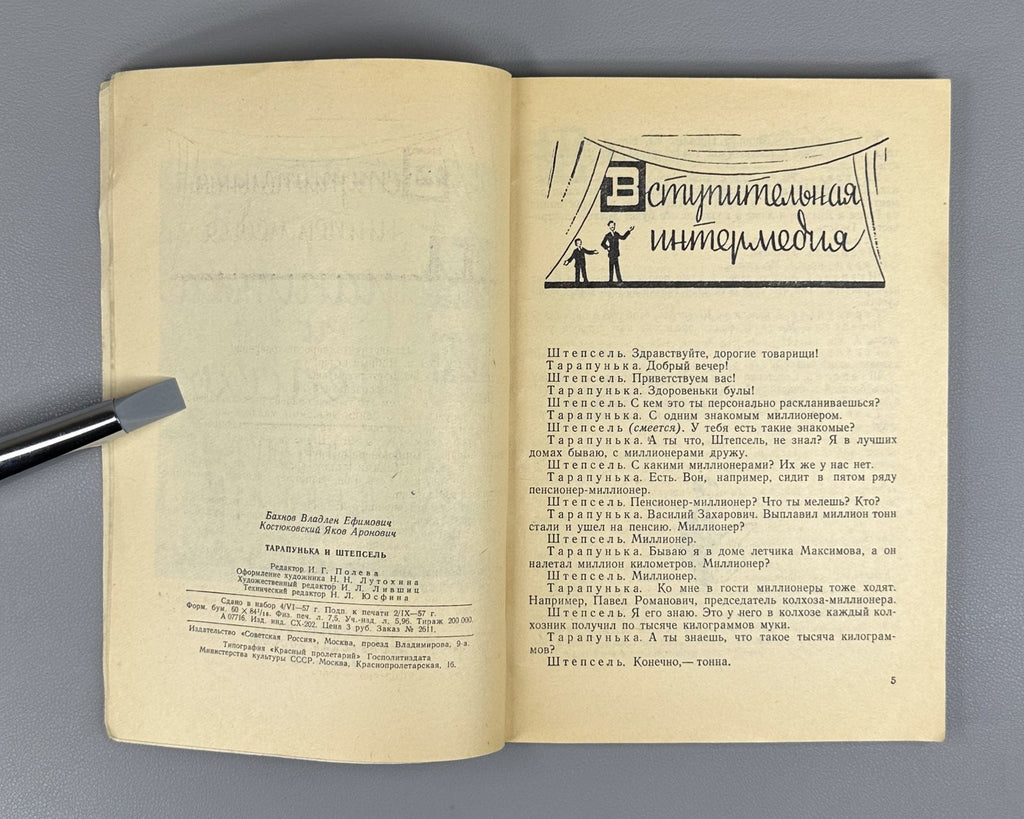 Бахнов Владлен Ефимович
Костюковский Яков Аронович
ТАРАПУНЬКА И ШТЕПСЕЛЬ
Редактор И. Г. Полева
Оформление художника Н. Н. Лутохина
Художественный редактор И. Л. Лившиц
Технический редактор Н. Л. Юсфина
Сдано в набор 4/VI—57 г. Подп. к печати 2/IX—57 г.
Форм. бум. 60 × 84¹/₁₆. Физ. печ. л. 7,5. Уч.-изд. л. 5,96. Тираж 200 000.
А 07716. Изд. инд. СХ-202. Цена 3 руб. Заказ № 2611.
Издательство «Советская Россия», Москва, проезд Владимирова, 9-а.
Типография «Красный пролетарий» Госполитиздата
Министерства культуры СССР. Москва, Краснопролетарская, 16.
Вступительная
интермедия
Штепсель. Здравствуйте, дорогие товарищи!
Тарапунька. Добрый вечер!
Штепсель. Приветствуем вас!
Тарапунька. Здоровеньки булы!
Штепсель. С кем это ты персонально раскланиваешься?
Тарапунька. С одним знакомым миллионером.
Штепсель (смеется). У тебя есть такие знакомые?
Тарапунька. А ты что, Штепсель, не знал? Я в лучших
домах бываю, с миллионерами дружу.
Штепсель. С какими миллионерами? Их же у нас нет.
Тарапунька. Есть. Вон, например, сидит в пятом ряду
пенсионер-миллионер.
Штепсель. Пенсионер-миллионер? Что ты мелешь? Кто?
Тарапунька. Василий Захарович. Выплавил миллион тонн
стали и ушел на пенсию. Миллионер?
Штепсель. Миллионер.
Тарапунька. Бываю я в доме летчика Максимова, а он
налетал миллион километров. Миллионер?
Штепсель. Миллионер.
Тарапунька. Ко мне в гости миллионеры тоже ходят.
Например, Павел Романович, председатель колхоза-миллионера.
Штепсель. Я его знаю. Это у него в колхозе каждый кол-
хозник получил по тысяче килограммов муки.
Тарапунька. А ты знаешь, что такое тысяча килограм-
мов?
Штепсель. Конечно,— тонна.
5